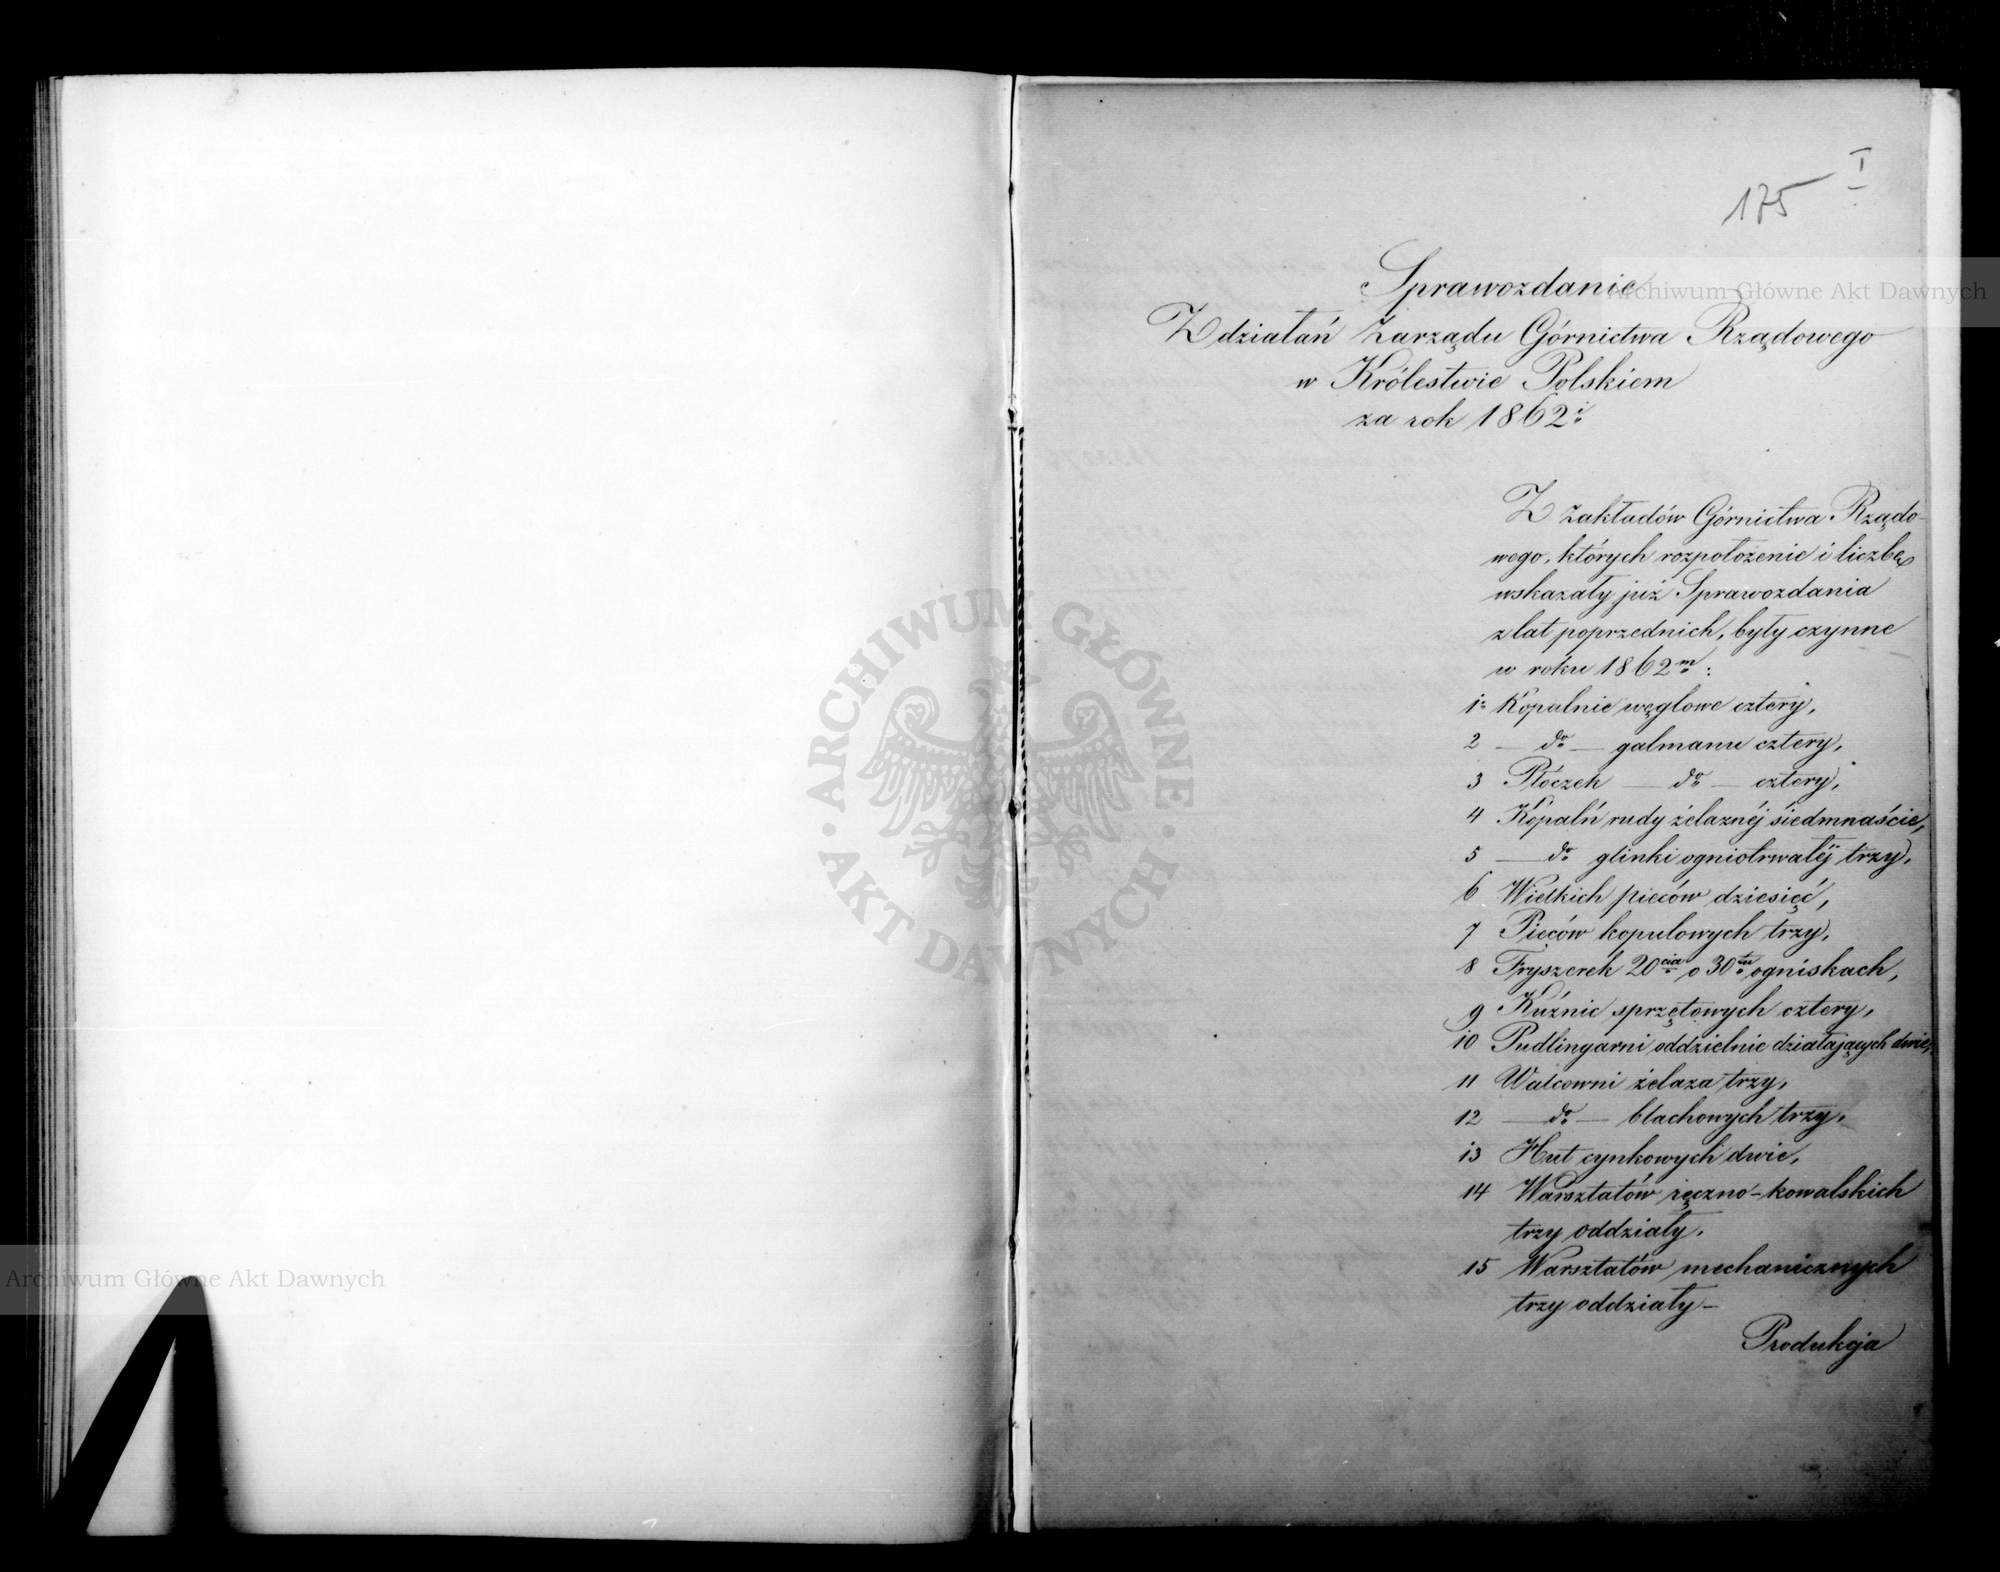 I
175
Sprawozdanie
Z działań Zarządu Górnictwa Rządowego
w Królestwie Polskiem
za rok 1862i
Z Zakładów Górnictwa Rządo-
wego, których rozpołożenie i liczbę
wskazały już Sprawozdania
z lat poprzednich, były czynne
w roku 1862m:
1o Kopalnie węglowe cztery,
2 — do — galmanu cztery,
3 Płóczek — do — cztery,
4 Kopalń rudy żelaznéj siedmnaście,
5 — do glinki ogniotrwałéj trzy,
6 Wielkich pieców dziesięć,
7 Pieców kopulowych trzy,
8 Fryszerek 20cia o 30tu ogniskach,
9 Kuźnic sprzętowych cztery,
10 Pudlingarni oddzielnie działających dwie,
11 Walcowni żelaza trzy,
12 — do — blachowych trzy,
13 Hut cynkowych dwie,
14 Warsztatów ręczno-kowalskich
trzy oddziały.
15 Warsztatów mechanicznych
trzy oddziały –
Produkcja
Archiwum Główne Akt Dawnych
ARCHIWUM GŁÓWNE · AKT DAWNYCH ·
Archiwum Główne Akt Dawnych